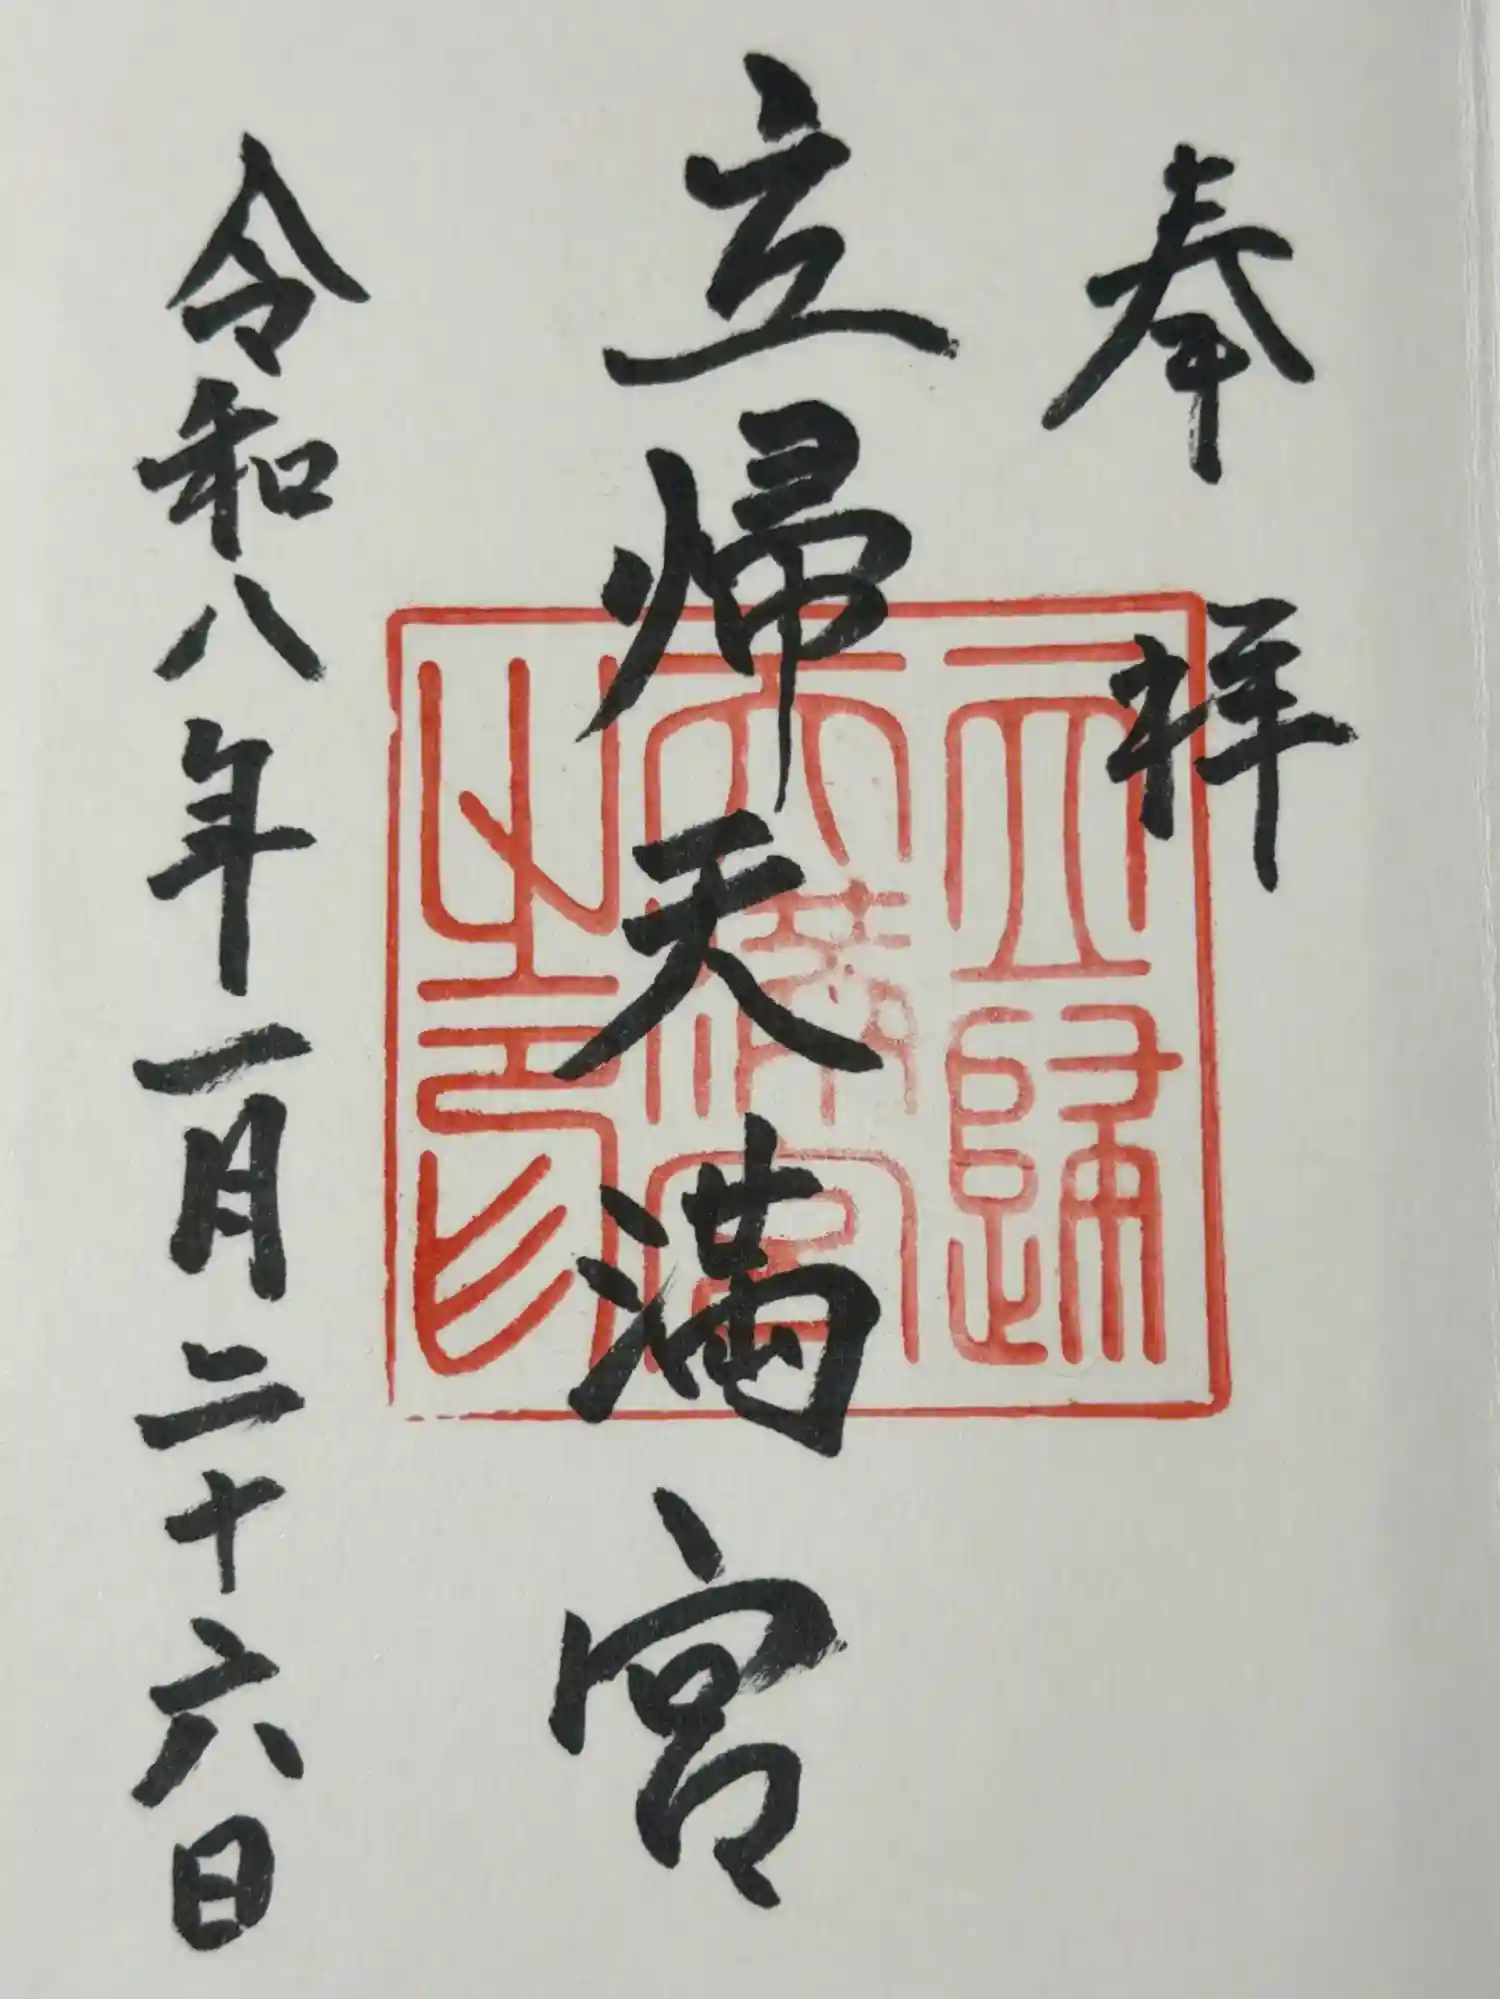 奉拝
立帰天満宮
令和八年一月二十六日
立歸
天満宮
之印